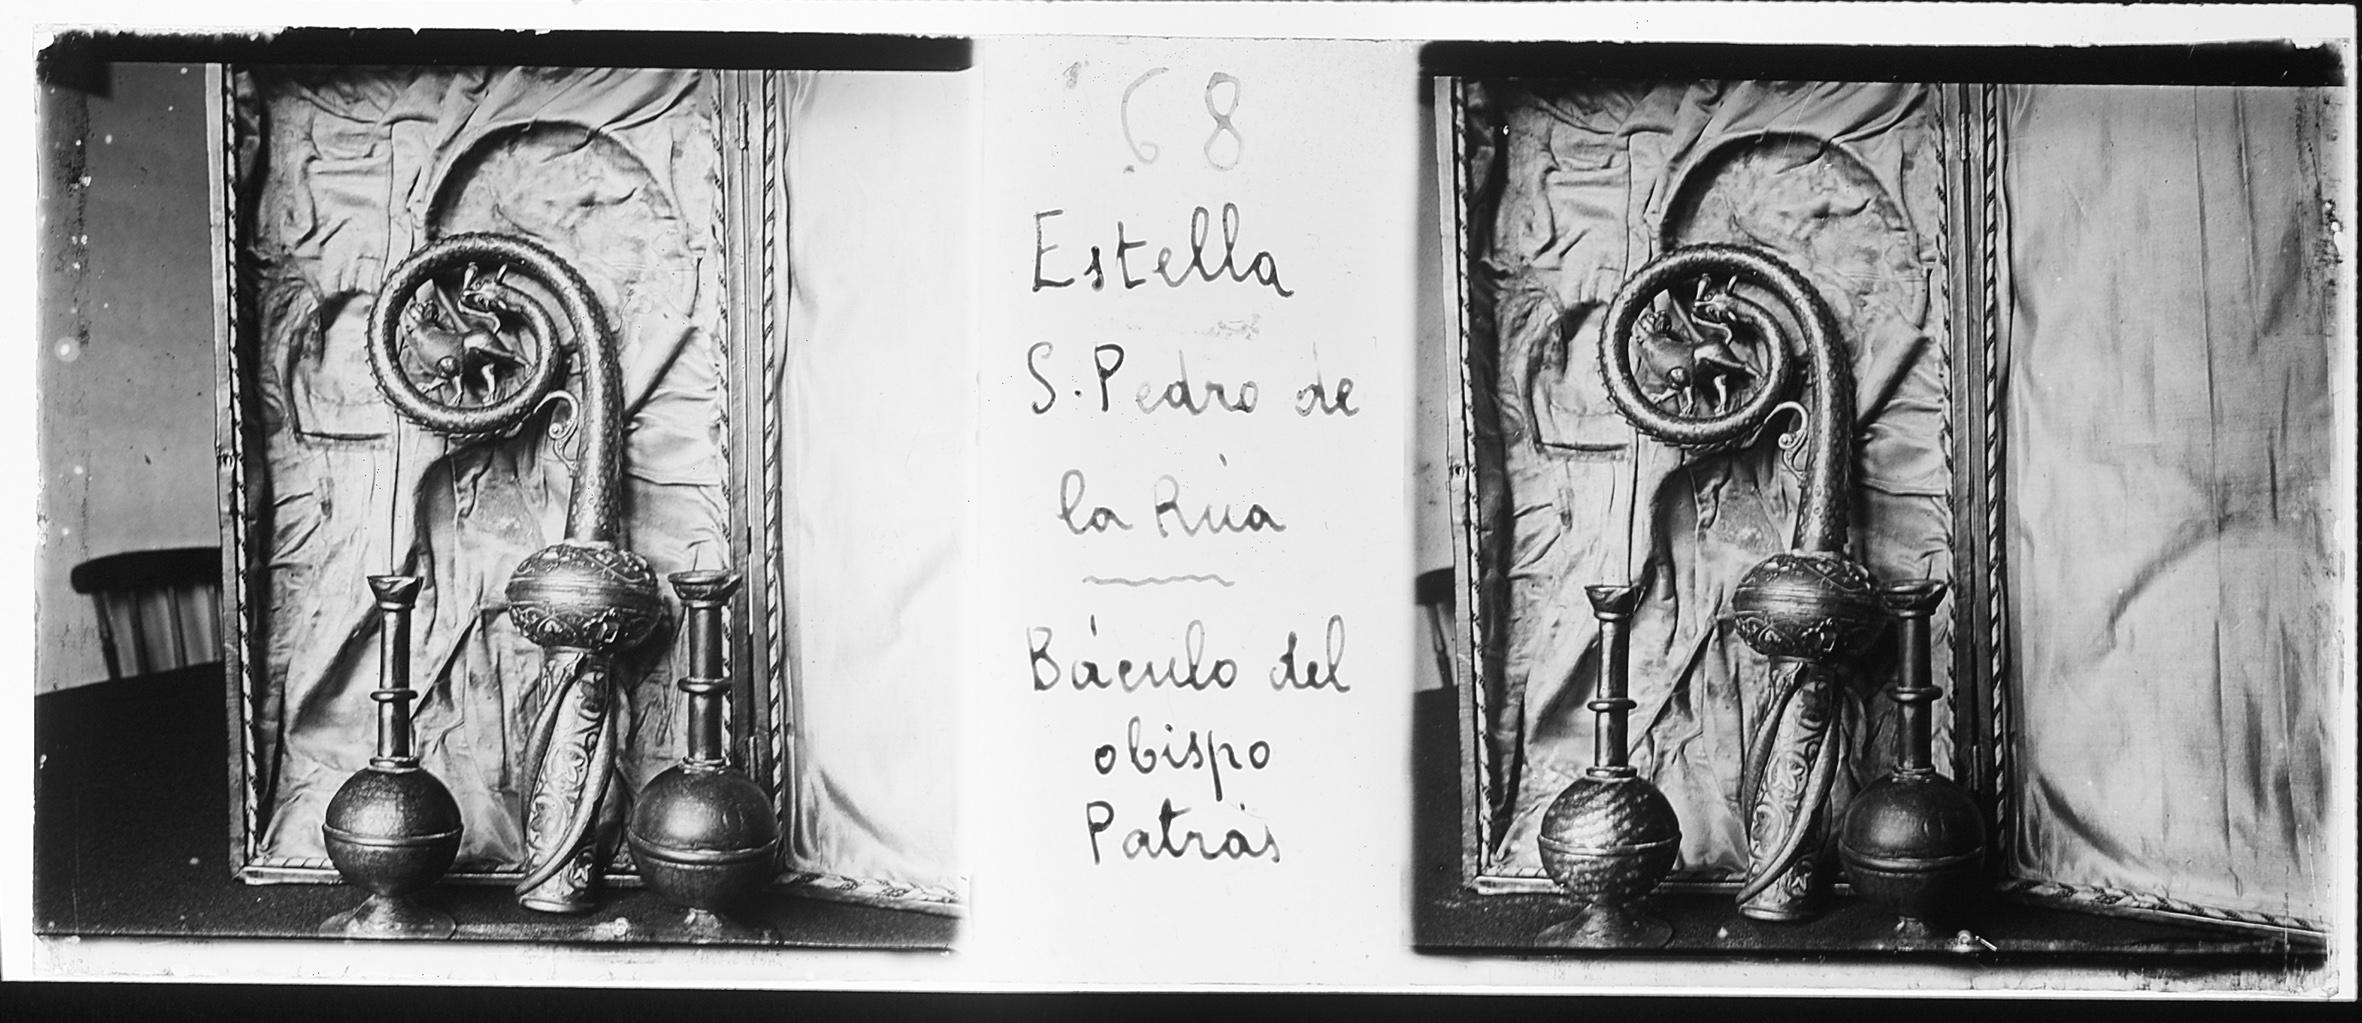 68
Estella
S. Pedro de
la Rúa
Báculo del
obispo
Patrás